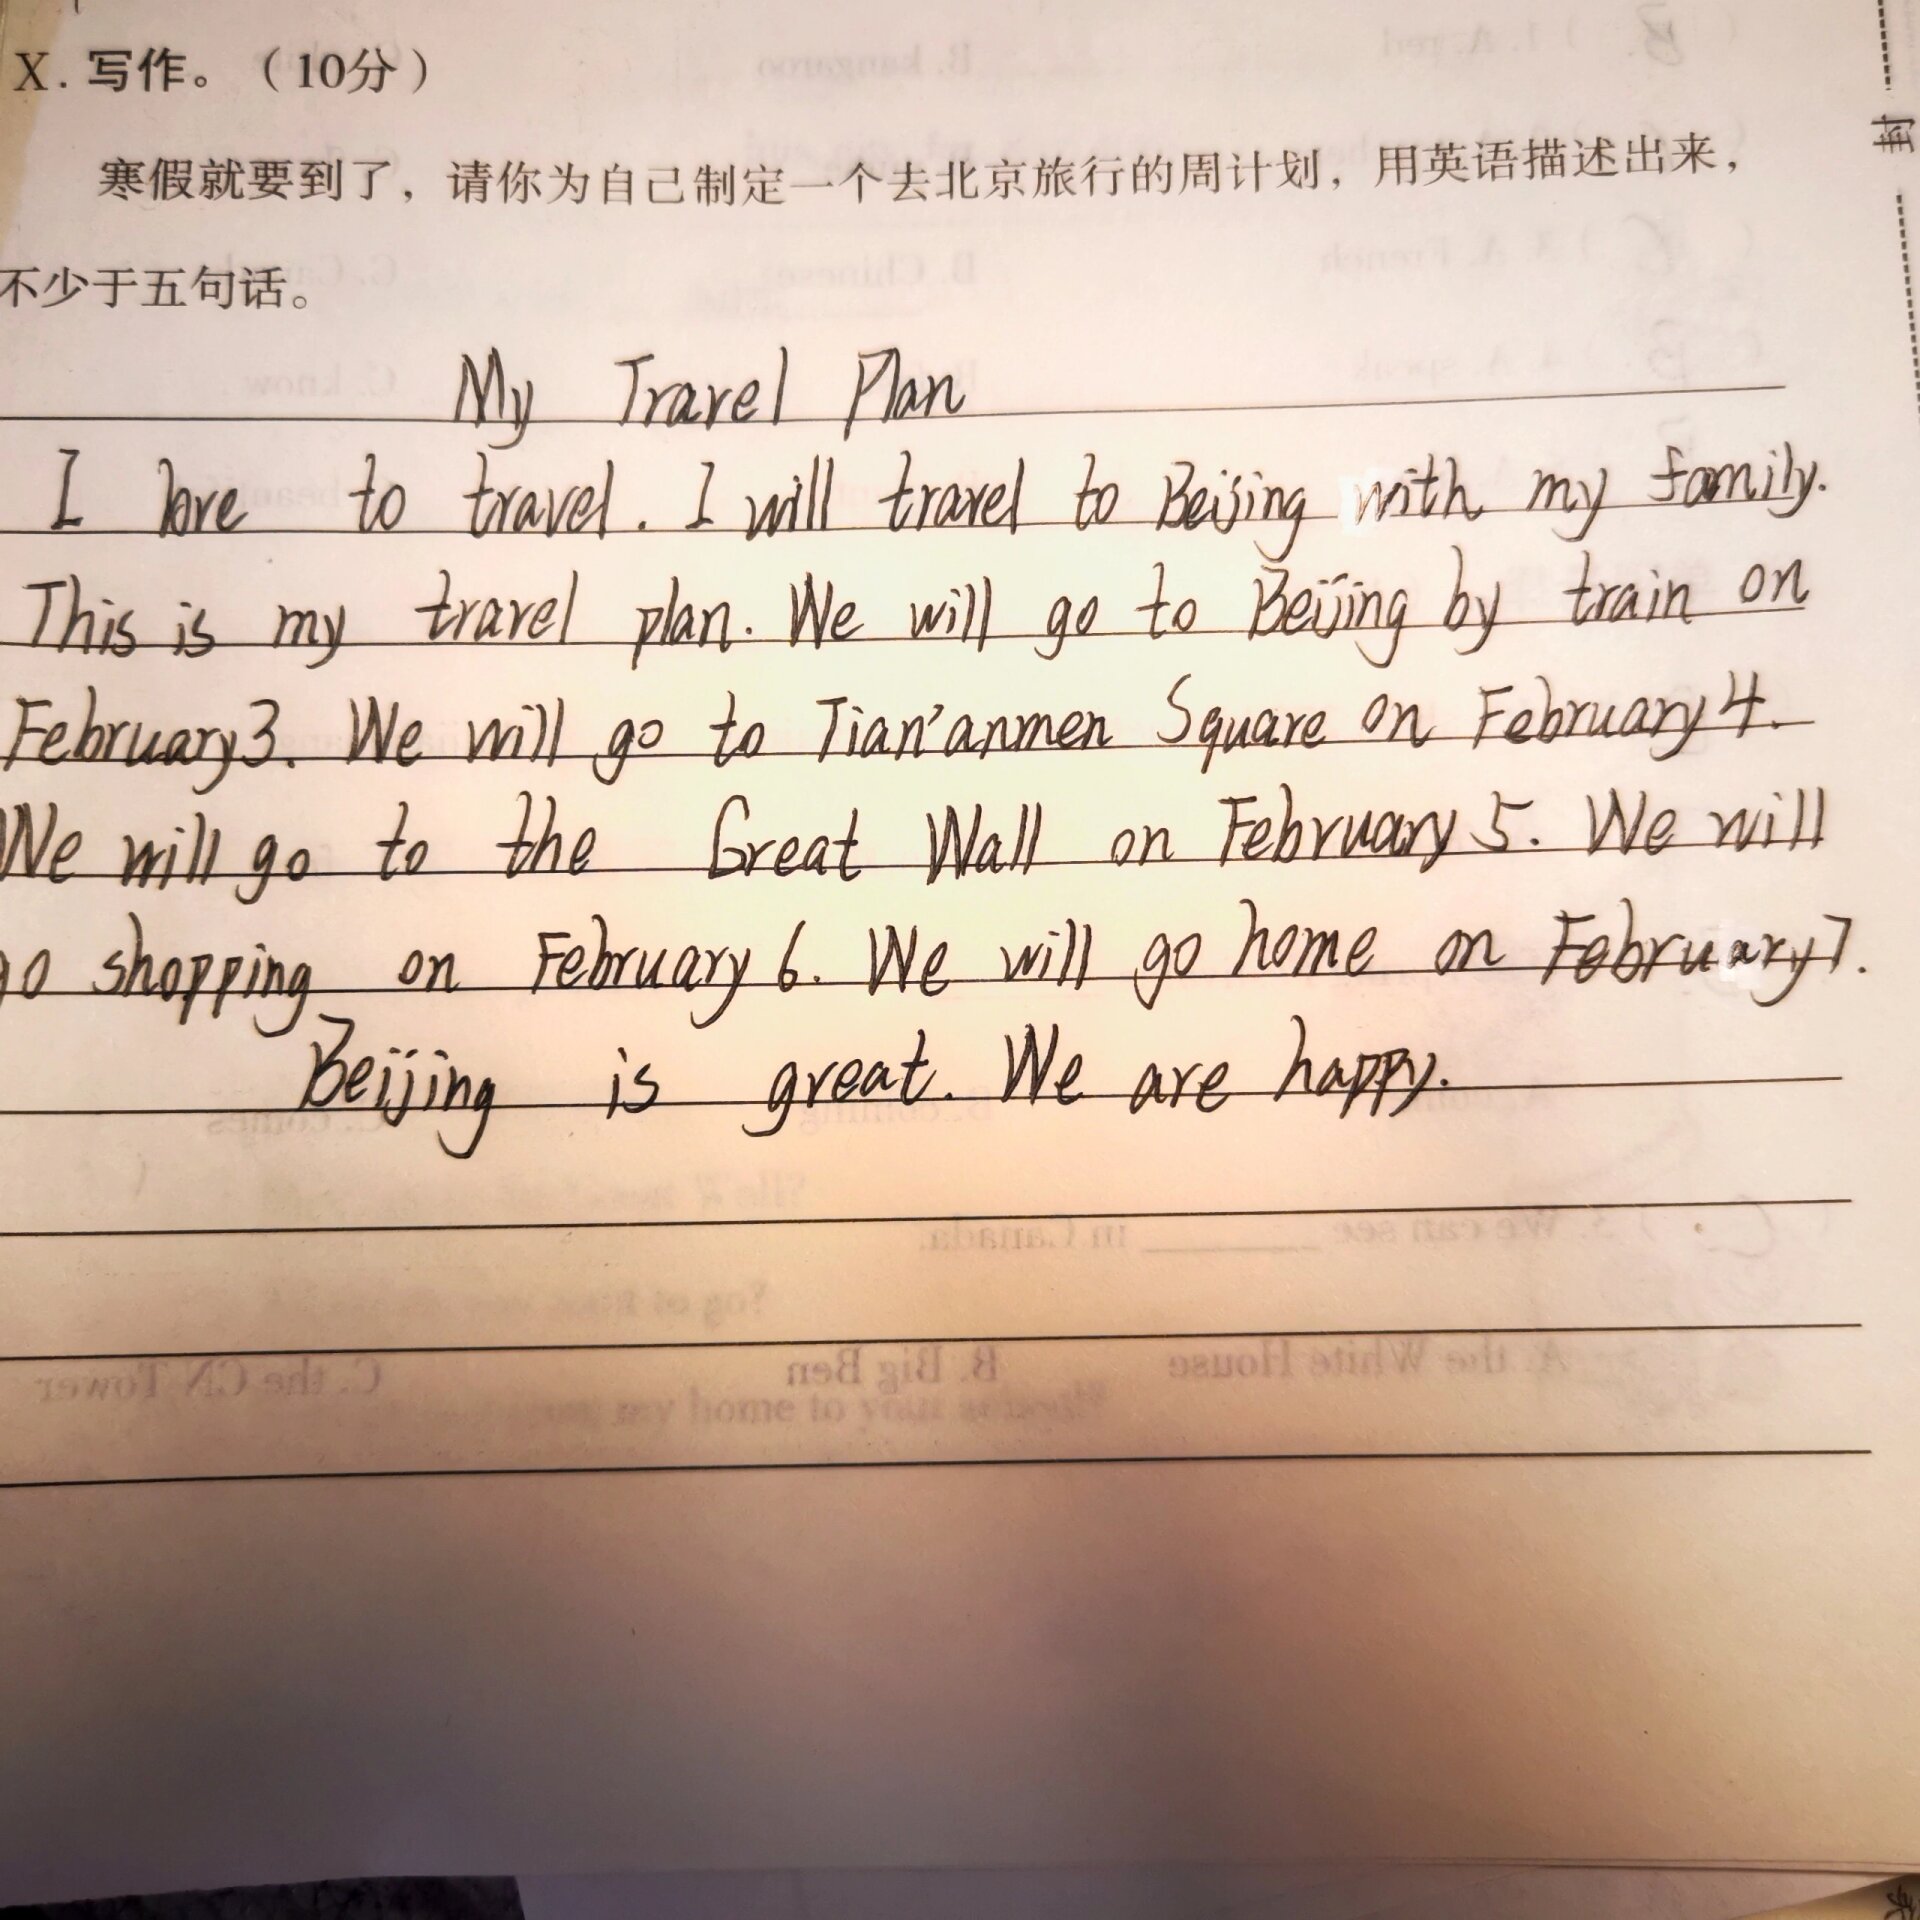 X. 写作。（10分）
寒假就要到了，请你为自己制定一个去北京旅行的周计划，用英语描述出来，
不少于五句话。
My Travel Plan
I love to travel. I will travel to Beijing with my family.
This is my travel plan. We will go to Beijing by train on
February 3. We will go to Tian'anmen Square on February 4.
We will go to the Great Wall on February 5. We will
go shopping on February 6. We will go home on February 7.
Beijing is great. We are happy.
封